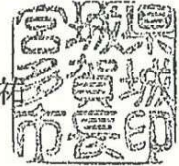 祐
宮城県
多賀城
市長印